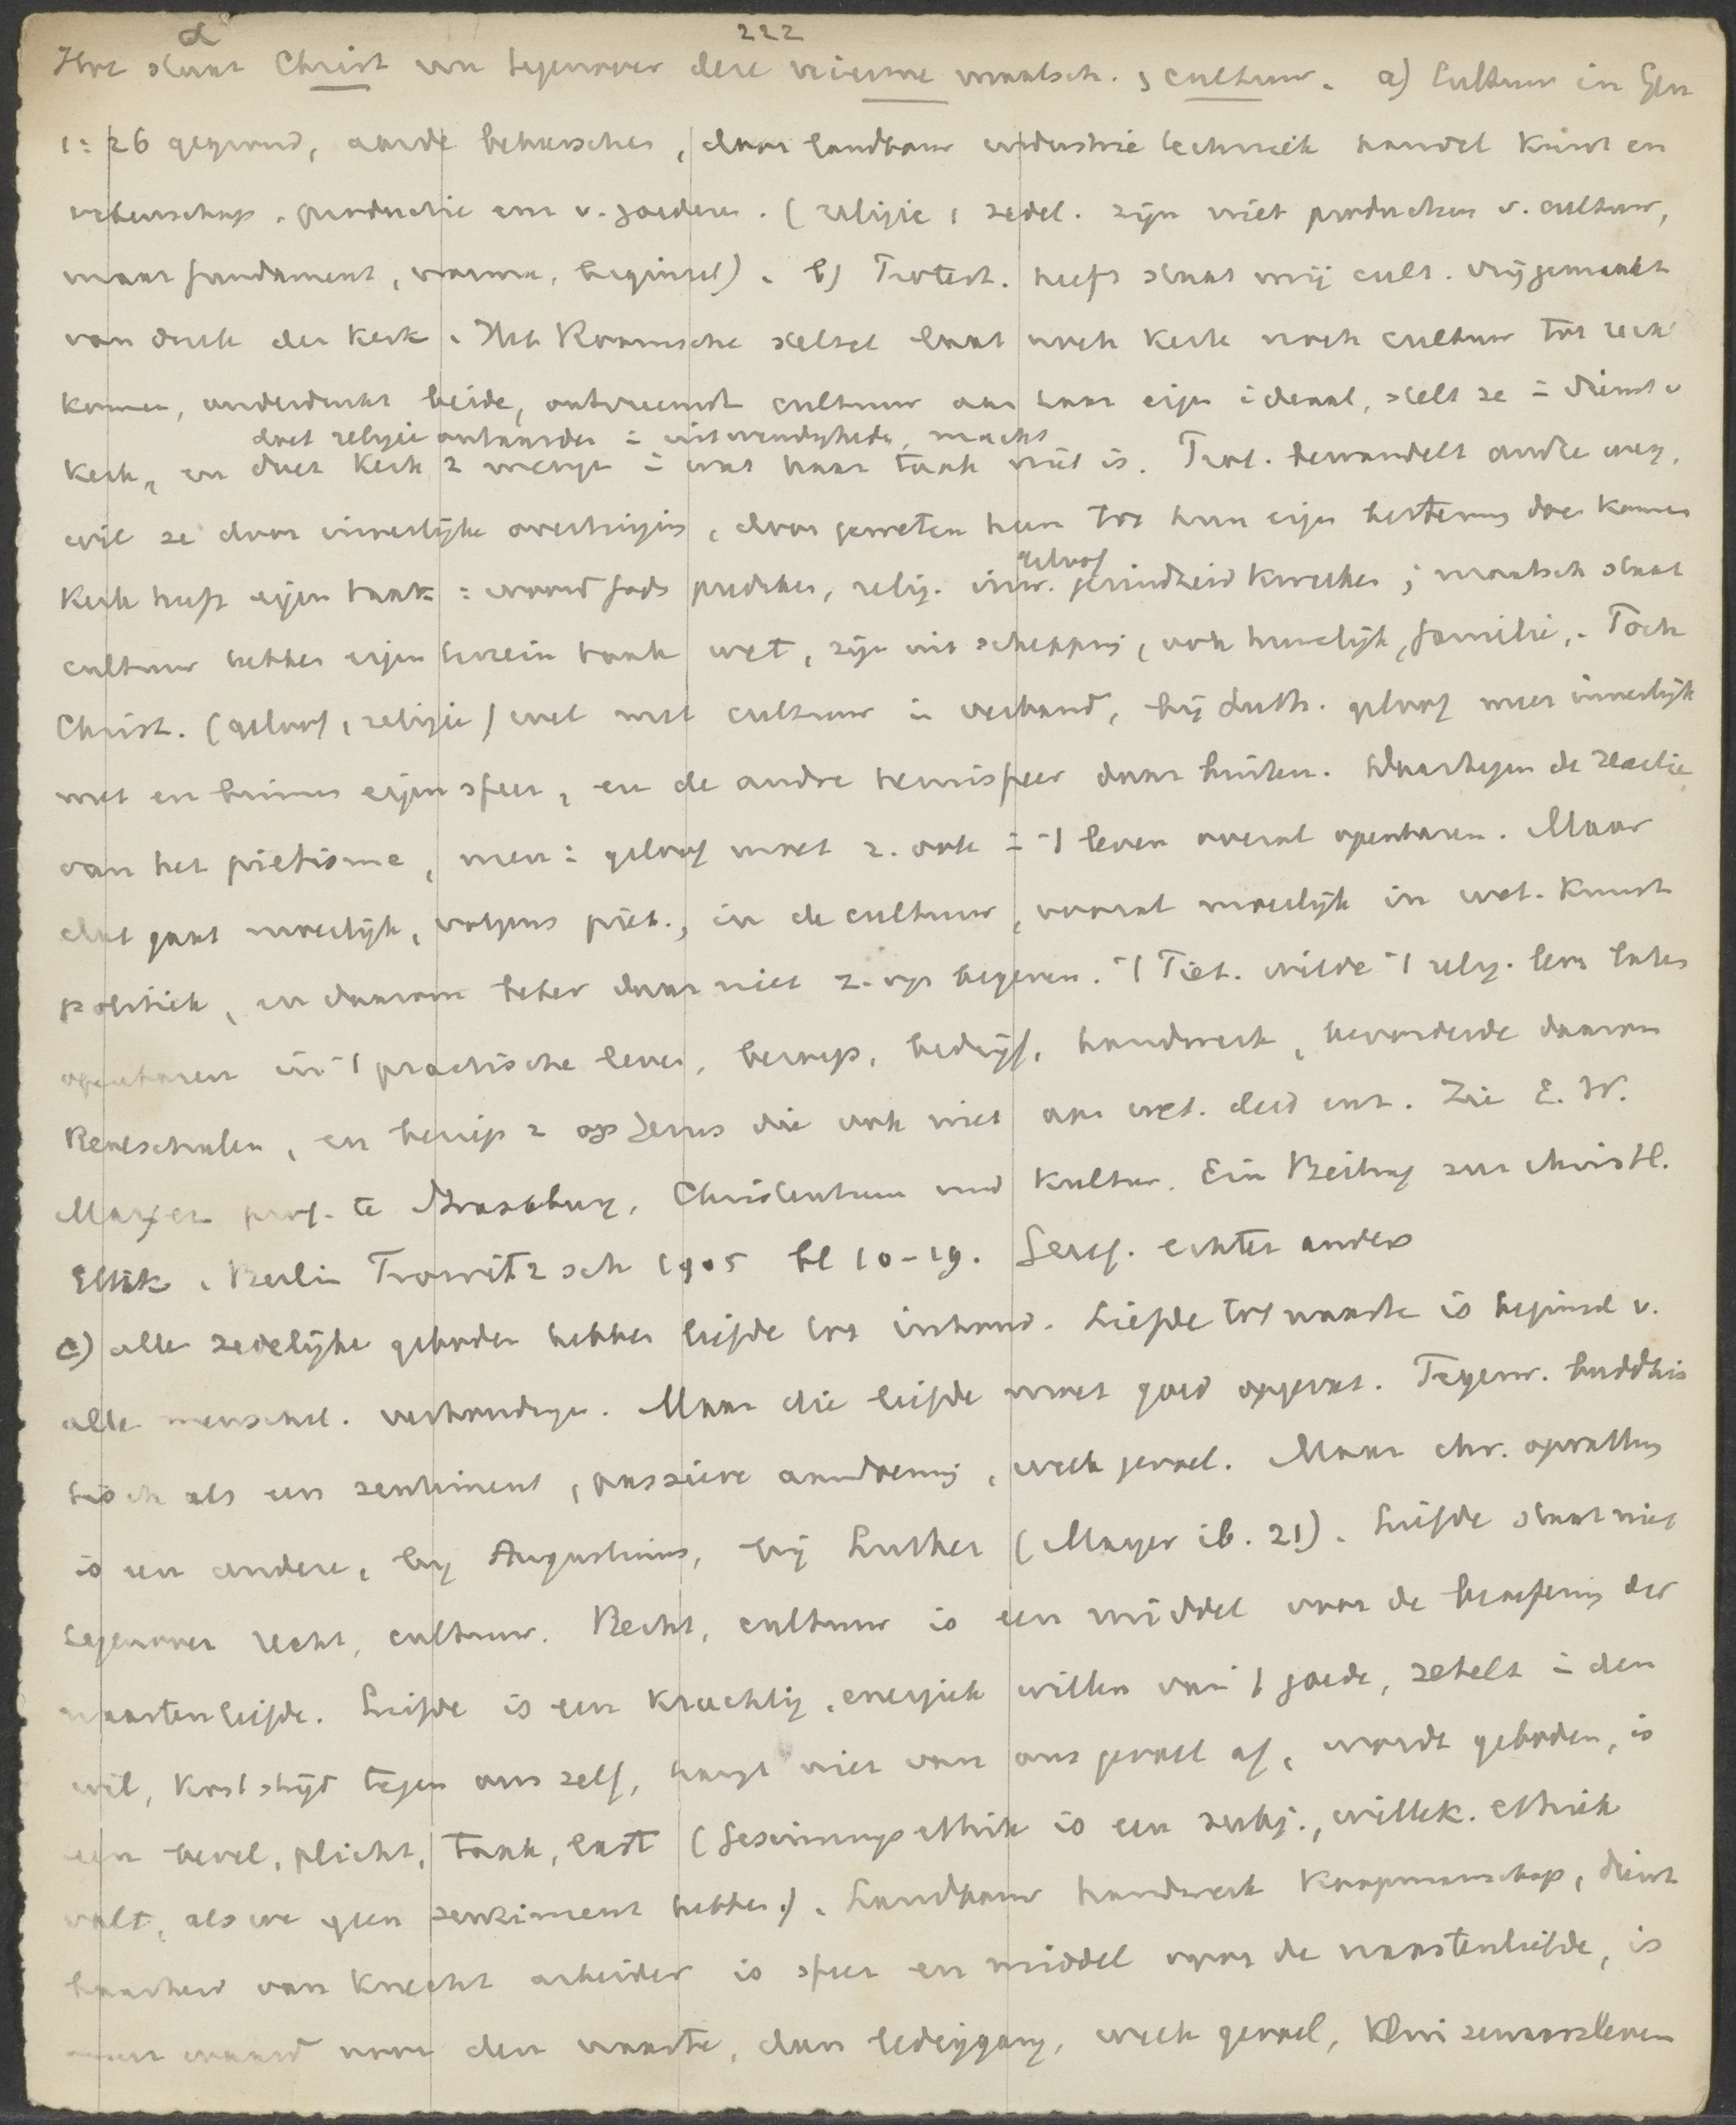 α 222
Hoe staat Christ nu tegenover deze nieuwe maatsch., cultuur. a) Cultuur in Gen
1:26 gegrond, aarde beheerschen, door landbouw industrie techniek handel kunst en
wetenschap. productie enz v. goederen. (religie, zedel. zijn niet producten v. cultuur,
maar fundament, norma, beginsel). b) Protest. heeft staat mij cult. vrijgemaakt
van druk der kerk. Het Roomsche stelsel laat noch kerk noch cultuur tot recht
komen, onderdrukt beide, ontvreemdt cultuur aan haar eigen ideaal, stelt ze in dienst v
doet religie ontaarden in uitwendigheden, macht
kerk, en doet kerk z mengen in wat haar taak niet is. Prot. bewandelt andre weg,
wil ze door innerlijke overtuiging, door geweten heen tot hun eigen bestemg doen komen
geloof
Kerk heeft eigen taak: woord Gods prediken, relig. inw. gezindheid kweeken; maatsch staat
cultuur hebben eigen terrein taak wet, zijn uit schepping, ook huwelijk, familie. Toch
Christ. (geloof, religie) wel met cultuur in verband, bij Luth. geloof meer innerlijk
met en binnen eigen sfeer, en de andre hemisfeer daar buiten. Daartegen de reactie
van het pietisme, men: geloof moet z. ook in 't leven overal openbaren. Maar
dat gaat moeilijk, volgens piët., in de cultuur, vooral moeilijk in wet. kunst
politiek, en daarom beter daar niet z. op begeven. 't Piet. wilde 't relig. leven laten
openbaren in 't practische leven, beroep, bedrijf, handwerk, bevorderde daarom
Realschulen, en beriep z op Jezus die ook niet aan wet. deed enz. Zie E. W.
Mayer prof. te Strassburg, Christentum und Kultur. Ein Beitrag zur christl.
Ethik. Berlin Trowitzsch 1905 bl 10-19. Geref. echter anders
c) alle zedelijke geboden hebben liefde tot inhoud. Liefde tot naaste is beginsel v.
alle menschel. verhoudingen. Maar die liefde moet goed opgevat. Tegenw. buddhis
tisch als een sentiment, passieve aandoening, week gevoel. Maar chr. opvatting
is een andere, bij Augustinus, bij Luther (Mayer ib. 21). Liefde staat niet
tegenover recht, cultuur. Recht, cultuur is een middel voor de beoefening der
naastenliefde. Liefde is een krachtig, energiek willen van 't goede, zetelt in den
wil, kost strijd tegen ons zelf, hangt niet van ons gevoel af, wordt geboden, is
een bevel, plicht, taak, last (Gesinnungsethik is een subj., willek. ethiek
valt, als we geen sentiment hebben). Landbouw handwerk koopmanschap, dienst
baarheid van knecht arbeider is sfeer en middel voor de naastenliefde, is
meer waard voor den naaste, dan lediggang, week gevoel, kluizenaarsleven